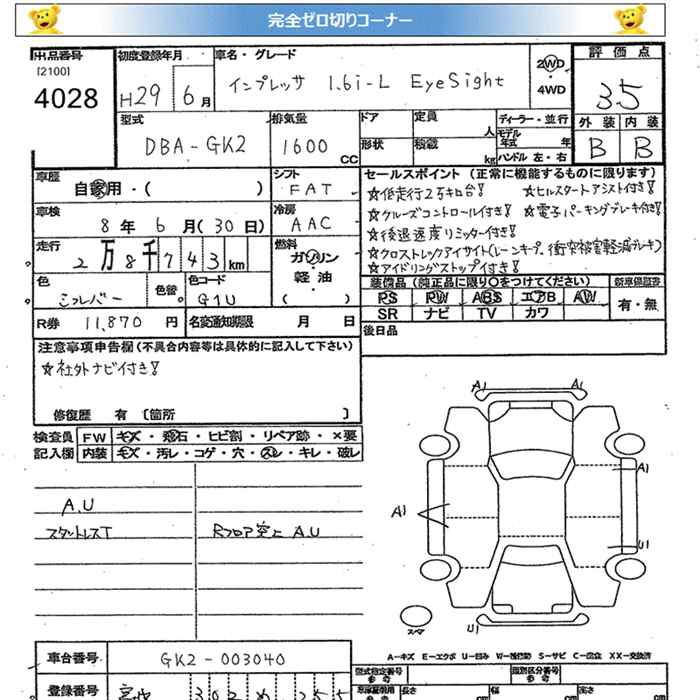 完全ゼロ切りコーナー
出品番号
[2100]
4028
初度登録年月
H29 6月
車名・グレード
インプレッサ 1.6i-L EyeSight
2WD
・
4WD
評価点
3.5
外装 内装
B B
型式
DBA-GK2
排気量
1600
CC
ドア 定員
人
形状 積載
kg
ディーラー・並行
モデル
年式 年
ハンドル 左・右
車歴
自家用・( )
シフト
FAT
車検
8年 6月(30日)
冷房
AAC
走行
2万8千743km
燃料
ガソリン
・
軽油
( )
色
シルバー
色替
色コード
G1U
R券 11,870 円
名変通知期限 月 日
セールスポイント (正常に機能するものに限ります)
☆低走行2万キロ台! ☆ヒルスタートアシスト付き!
☆クルーズコントロール付き! ☆電子パーキングブレーキ付き!
☆後退速度リミッター付き!
☆アイドリングストップ付き!
装備品 (純正品に限り○をつけてください)
新車保証書
PS PW ABS エアB AW
SR ナビ TV カワ
有・無
後日品
注意事項申告欄(不具合内容等は具体的に記入して下さい)
☆社外ナビ付き!
修復歴 有 〔箇所 〕
検査員
記入欄
FW キズ・飛石・ヒビ割・リペア跡・×要
内装 キズ・汚レ・コゲ・穴・スレ・キレ・破レ
A.U
スタットレスT
Rフロア突上 A.U
A1 A1
A1
A1
U1
U1
スペア
A-キズ E-エクボ U-凹み W-補修跡 S-サビ C-腐食 XX-交換済
車台番号
GK2-003040
登録番号
型式指定番号
参考
類別区分番号
参考
長さ
幅
高さ